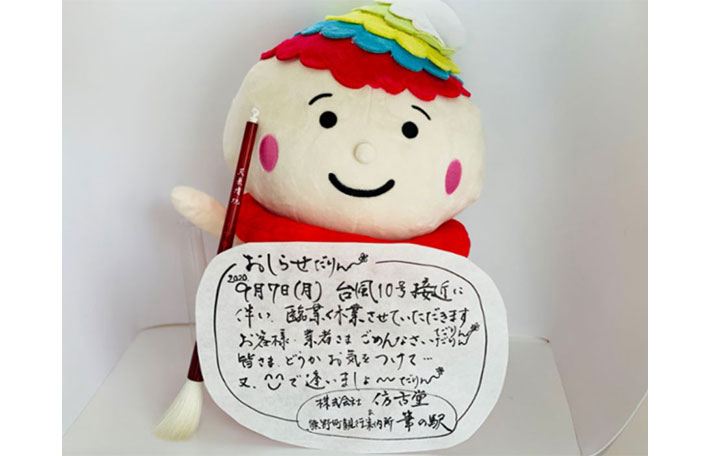 おしらせだりん
2020
9月7日(月) 台風10号接近に
伴い、臨時休業させていただきます
お客様・業者さま ごめんなさいだりん
皆さま どうか お気をつけて…
又、で逢いましょ〜だりん
株式会社 仿古堂
&
熊野町観光案内所 筆の駅